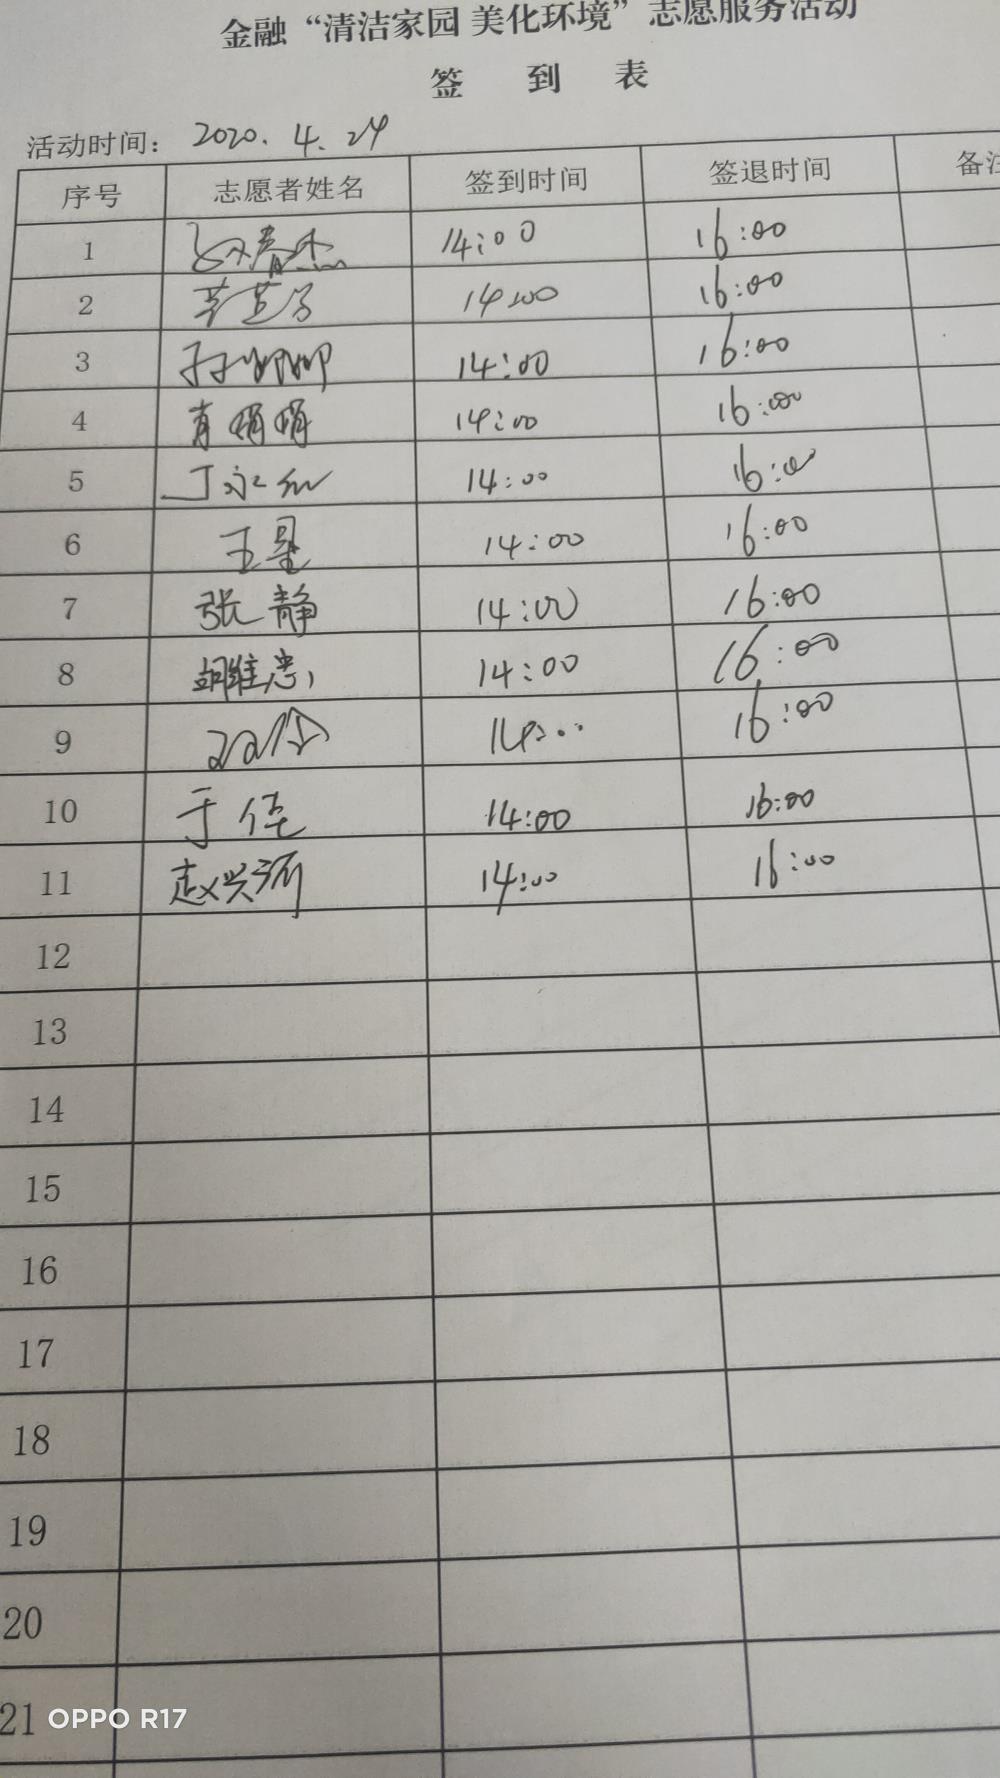 金融“清洁家园 美化环境”志愿服务活动
签 到 表
活动时间： 2020. 4. 24
序号 志愿者姓名 签到时间 签退时间 备注
1 14:00 16:00
2 14:00 16:00
3 14:00 16:00
4 肖娟娟 14:00 16:00
5 丁永红 14:00 16:00
6 王星 14:00 16:00
7 张静 14:00 16:00
8 胡维忠 14:00 16:00
9 14:00 16:00
10 于佳 14:00 16:00
11 赵兴河 14:00 16:00
12
13
14
15
16
17
18
19
20
21 OPPO R17